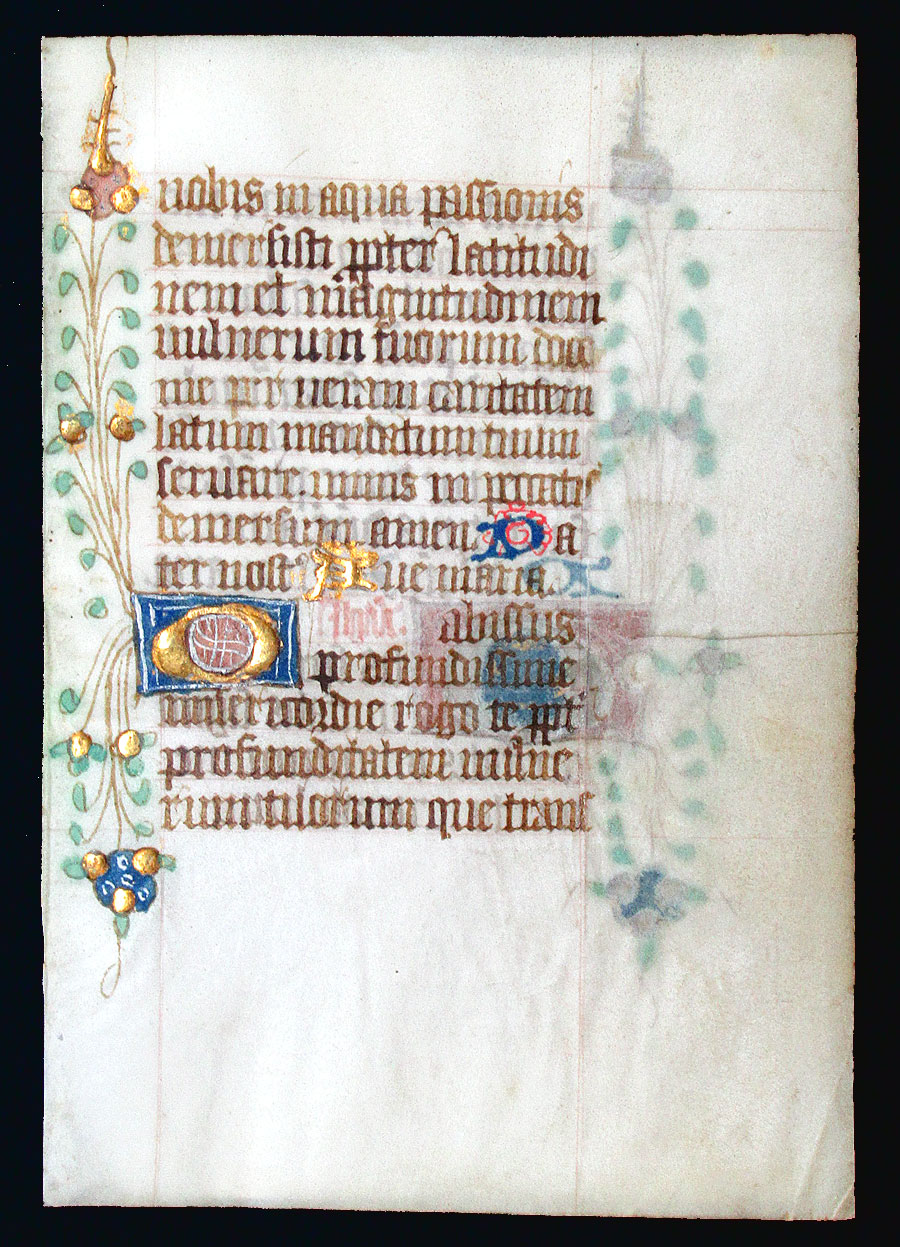 nobis in aqua passionis
demersisti ppter latitudi
nem et magnitudinem
vulnerum tuorum doce
me per veram caritatem
latum mandatum tuum
servare nimis in peccatis
demersum amen. Pa
ter nost Ave maria.
O abissus
profundissime
misericordie rogo te ppt
profunditatem vulne
rum tuorum que trans